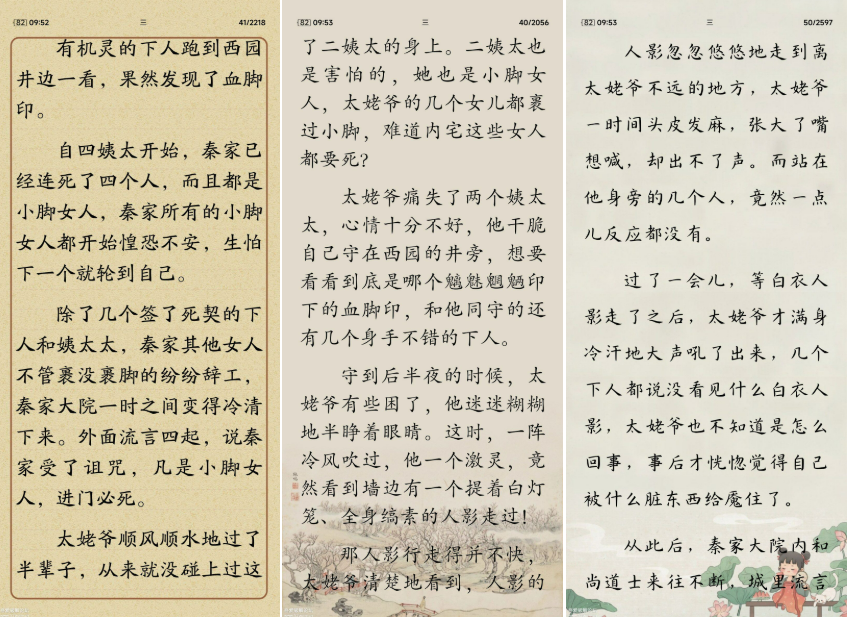 (82) 09:52
三
41/2218
有机灵的下人跑到西园
井边一看，果然发现了血脚
印。
自四姨太开始，秦家已
经连死了四个人，而且都是
小脚女人，秦家所有的小脚
女人都开始惶恐不安，生怕
下一个就轮到自己。
除了几个签了死契的下
人和姨太太，秦家其他女人
不管裹没裹脚的纷纷辞工，
秦家大院一时之间变得冷清
下来。外面流言四起，说秦
家受了诅咒，凡是小脚女
人，进门必死。
太姥爷顺风顺水地过了
半辈子，从来就没碰上过这
(82) 09:53
三
40/2056
了二姨太的身上。二姨太也
是害怕的，她也是小脚女
人，太姥爷的几个女儿都裹
过小脚，难道内宅这些女人
都要死？
太姥爷痛失了两个姨太
太，心情十分不好，他干脆
自己守在西园的井旁，想要
看看到底是哪个魑魅魍魉印
下的血脚印，和他同守的还
有几个身手不错的下人。
守到后半夜的时候，太
姥爷有些困了，他迷迷糊糊
地半睁着眼睛。这时，一阵
冷风吹过，他一个激灵，竟
然看到墙边有一个提着白灯
笼、全身缟素的人影走过！
那人影行走得并不快，
太姥爷清楚地看到，人影的
(82) 09:53
三
50/2597
人影忽忽悠悠地走到离
太姥爷不远的地方，太姥爷
一时间头皮发麻，张大了嘴
想喊，却出不了声。而站在
他身旁的几个人，竟然一点
儿反应都没有。
过了一会儿，等白衣人
影走了之后，太姥爷才满身
冷汗地大声吼了出来，几个
下人都说没看见什么白衣人
影，太姥爷也不知道是怎么
回事，事后才恍惚觉得自己
被什么脏东西给魇住了。
从此后，秦家大院内和
尚道士来往不断，城里流言